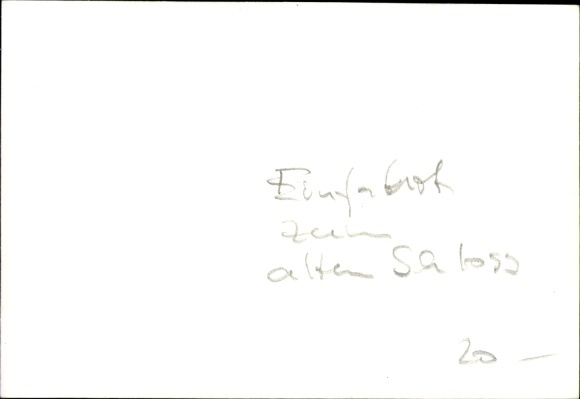 Einfahrt
zum
alten Schloss
20 —